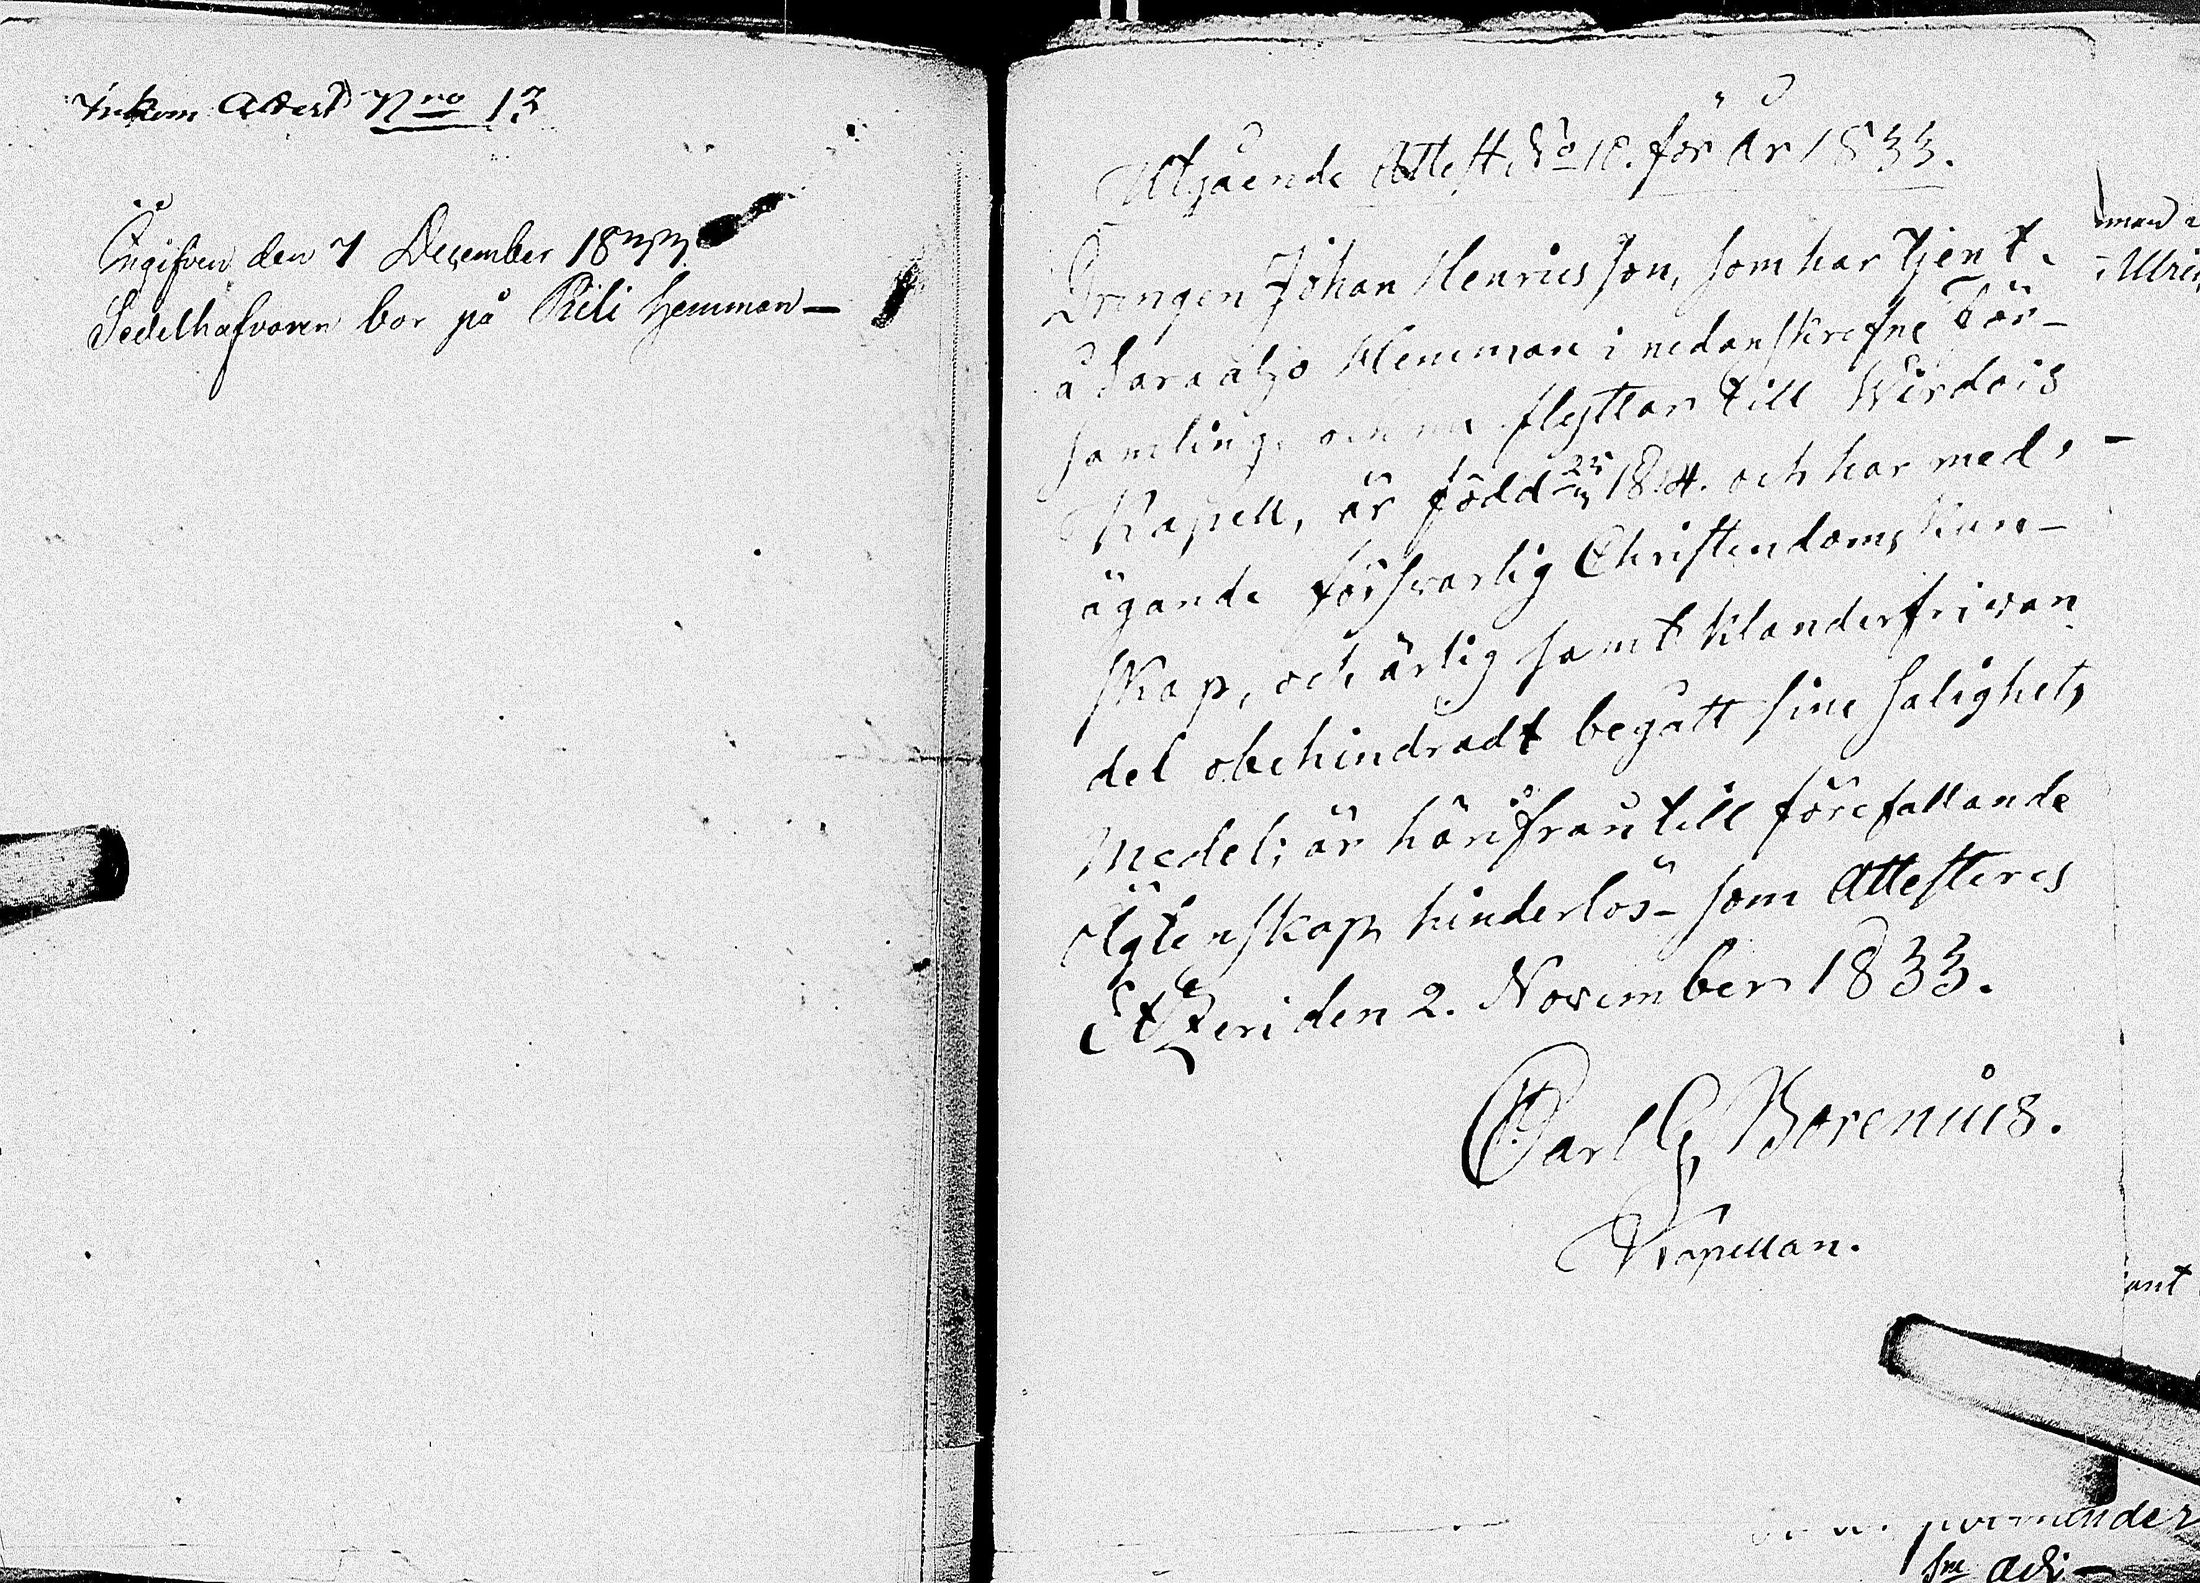 Inkom Attest Nro 13
Ingifven den 7 December 1833
Sedelhafvaren bor på Rili hemman —
Utgående Attest No 10. för år 1833.
Drengen Johan Henricsson, som har tjent
å hemman i nedanskrefne För-
samling, och nu flyttar till Wirdois
Kapell, är född 18 4. och har med,
ägande försvarlig Christendomskun-
skap, och ärlig samt klanderfri van
del obehindradt begått sine salighets
Medel; är härifrån till förefallande
Ägtenskap hinderlös – som Attesteres
Etzeri den 2. November 1833.
Carl G Borenius.
Kapellan.